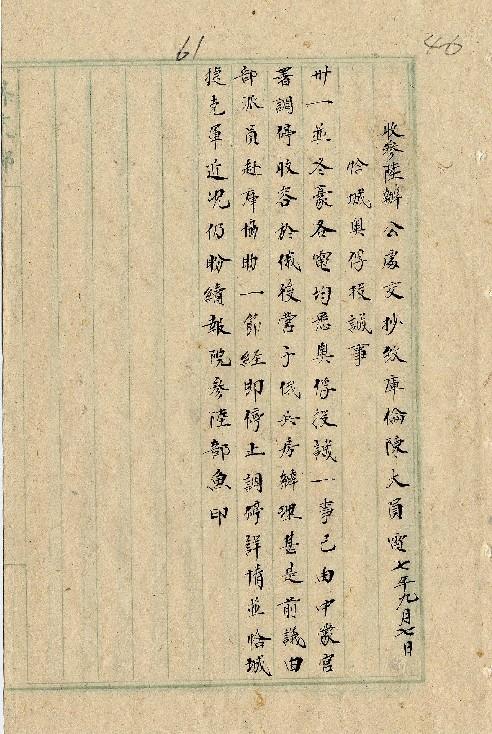 61
46
收參陸辦公處交抄致庫倫陳大員電 七年九月七日
恰城奧俘投誠事
卅一並冬豪各電均悉奧俘投誠一事已由中蒙官
署調停收容於俄後營子俄兵房辦理甚是前議由
部派員赴庫協助一節經即停止調停詳情並恰城
捷克軍近况仍盼續報院參陸部魚印